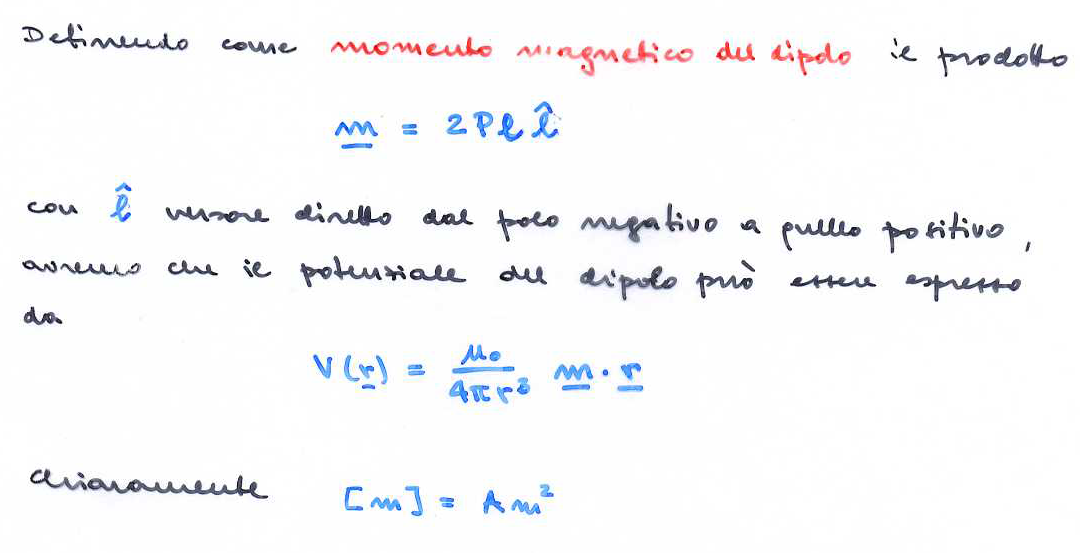 Definendo come momento magnetico del dipolo il prodotto
m = 2Pl l̂
con l̂ versore diretto dal polo negativo a quello positivo,
avremo che il potenziale del dipolo può essere espresso
da
V(r) = μ₀/4πr³ m · r
chiaramente [m] = Am²